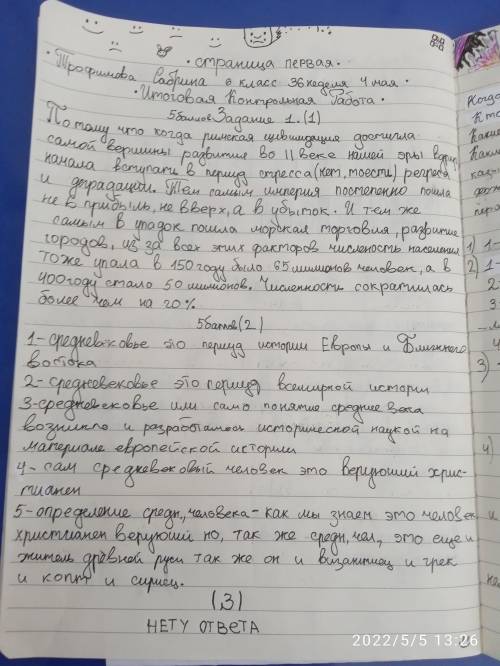 • страница первая •
• Трофимова Сабрина 6 класс 36 неделя 4 мая •
• Итоговая Контрольная Работа •
5 баллов Задание 1. (1)
Потому что когда римская цивилизация достигла
самой вершины развития во II веке нашей эры вдруг
начала вступать в период стресса (нет, тоесть) регреса
и доградации. Тем самым империя постепенно пошла
не в прибыль, не вверх, а в убыток. И тем же
самым в упадок пошла морская торговля, развитие
городов, из за всех этих факторов численость населения
тоже упала в 150 году было 65 милионов человек, а в
400 году стало 50 милионов. Численность сократилась
более чем на 20%
5 баллов (2)
1-средневековье это период истории Европы и Ближнего
востока
2-средневековье это период всемирной истории
3-средневековье или само понятие средние века
возникло и разработалось исторической наукой на
материале европейской истории
4-сам средневековый человек это верующий хрис-
тианен
5-определение средн, человека-как мы знаем это человек
христианен верующий но, так же средн, чел, это еще и
житель древней руси так же он и византиец и грек
и копт и сириец.
(3)
НЕТУ ОТВЕТА
Когда
1) 1-
2) 1-
2-
3
3)
4)
2022/5/5 13:26